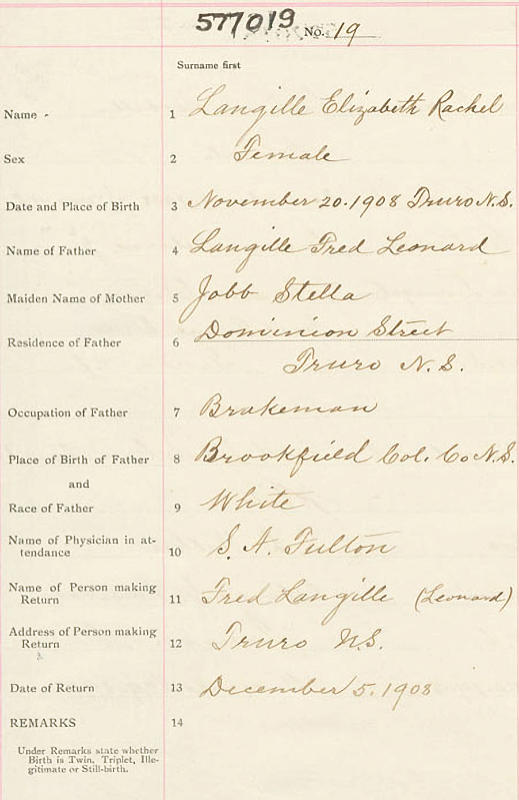 577019 No. 19
Surname first
Name - 1 Langille Elizabeth Rachel
Sex 2 Female
Date and Place of Birth 3 November 20. 1908 Truro N.S.
Name of Father 4 Langille Fred Leonard
Maiden Name of Mother 5 Jobb Stella
Residence of Father 6 Dominion Street
Truro N.S.
Occupation of Father 7 Brakeman
Place of Birth of Father 8 Brookfield Col. Co N.S.
and
Race of Father 9 White
Name of Physician in at-
tendance 10 S. A. Fulton
Name of Person making
Return 11 Fred Langille (Leonard)
Address of Person making
Return 12 Truro N.S.
Date of Return 13 December 5. 1908
REMARKS 14
Under Remarks state whether
Birth is Twin, Triplet, Ille-
gitimate or Still-birth.